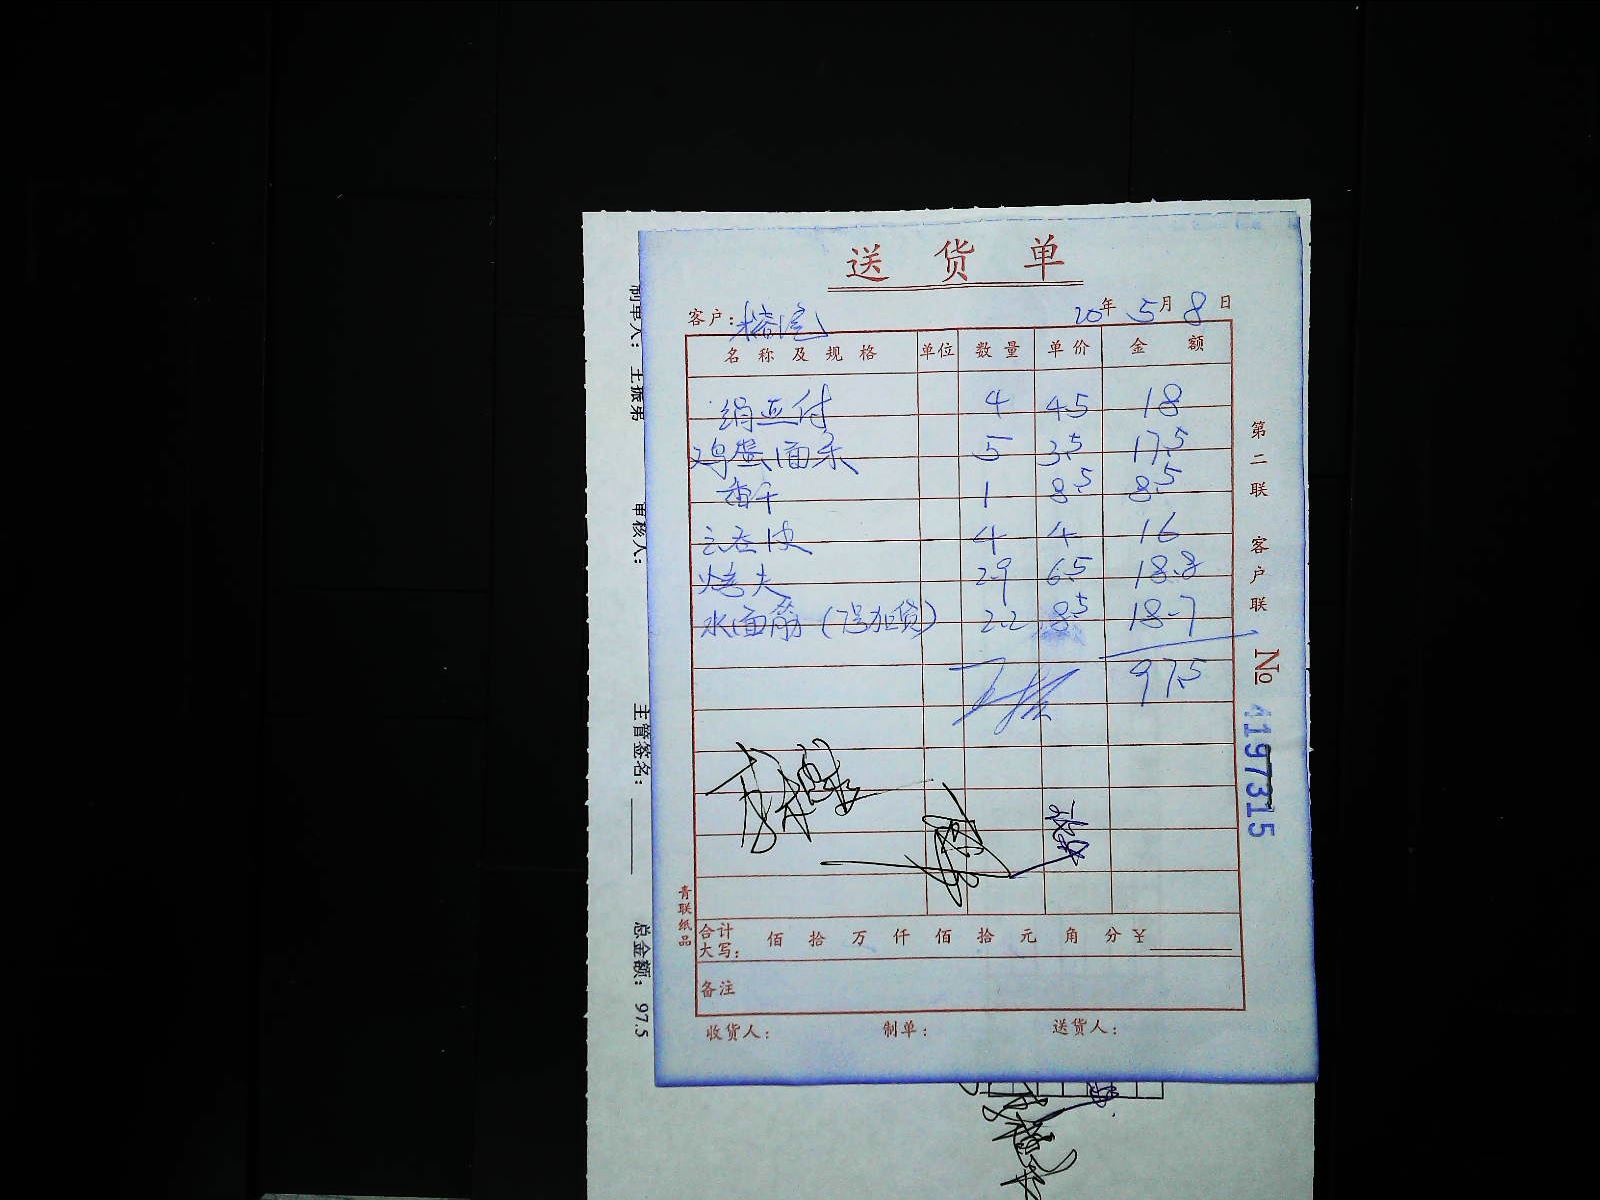 送货单
客户:
20年5月8日
名称及规格 单位 数量 单价 金额
4 4.5 18
鸡蛋面条 5 3.5 17.5
香干 1 8.5 8.5
4 4 16
烤夫 2.9 6.5 18.8
水面筋 2.2 8.5 18.7
97.5
合计大写: 佰 拾 万 仟 佰 拾 元 角 分 ¥
备注
收货人: 制单: 送货人:
青联纸品
第二联 客户联
No 4197315
制单人: 王振弟
审核人:
主管签名:
总金额: 97.5